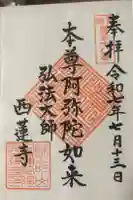 奉拝
令和七年七月十三日
本尊阿弥陀如来
弘法大師
西蓮寺